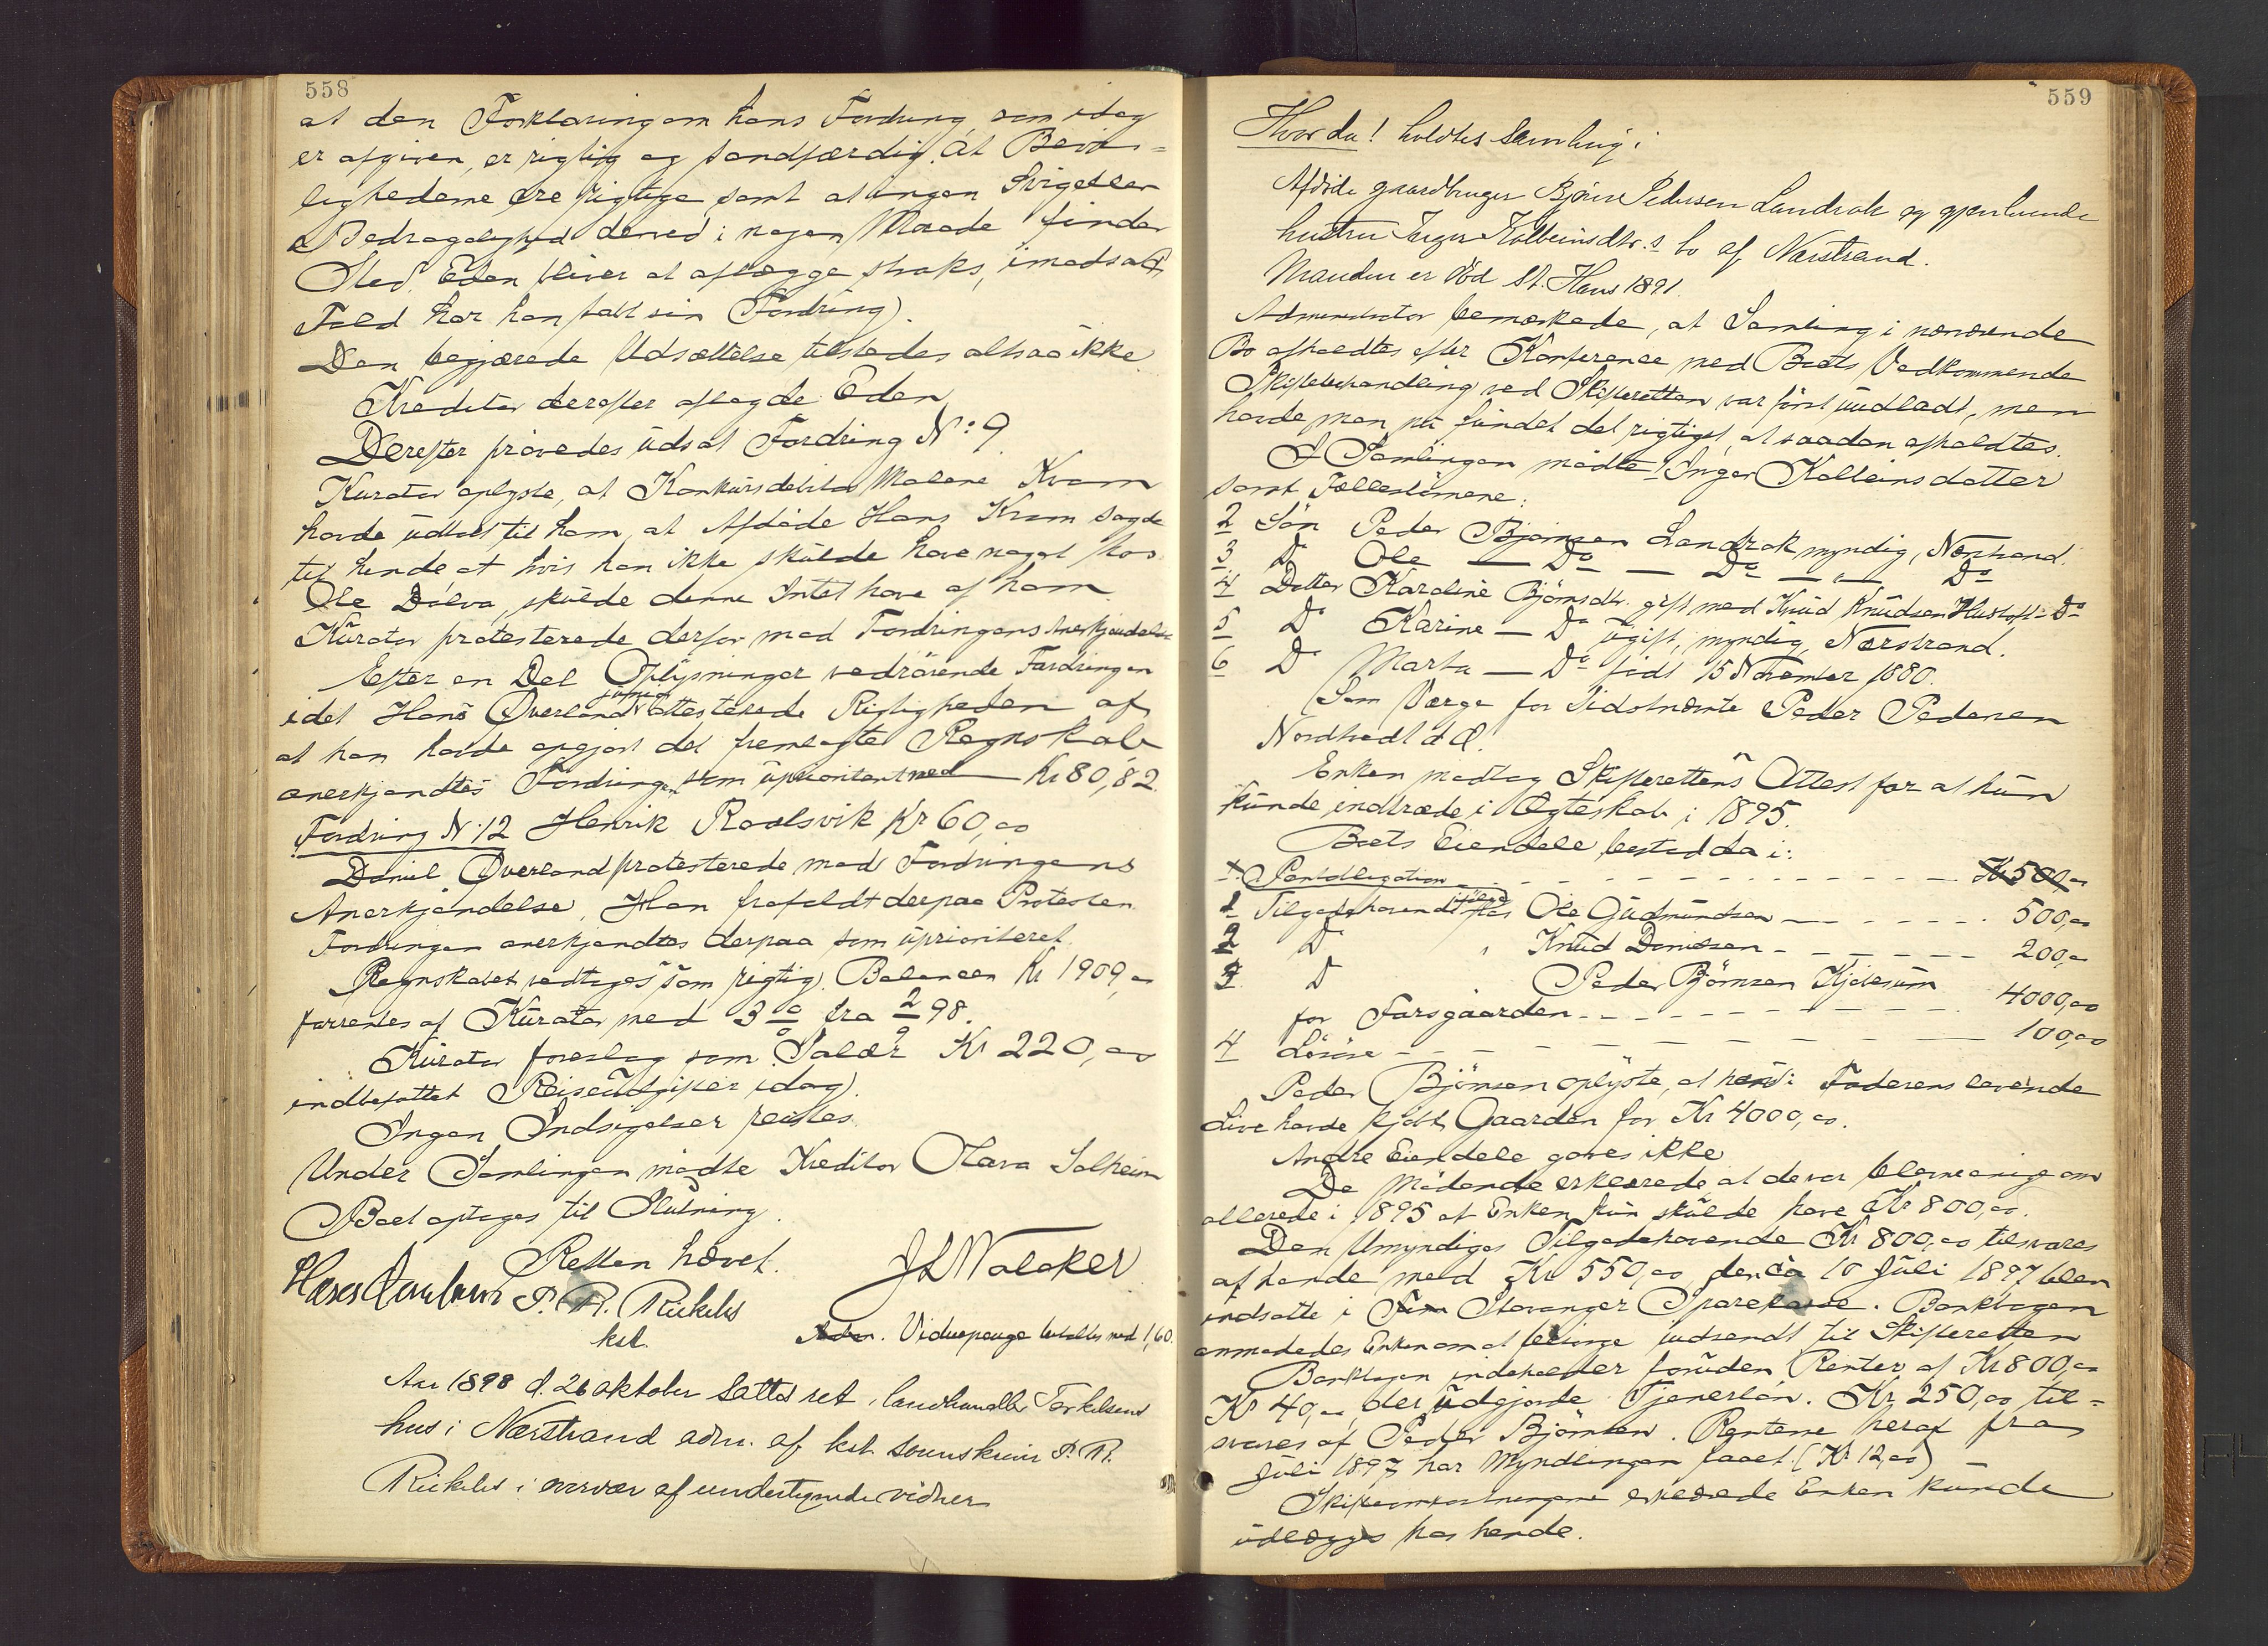 558
at den Forklaring om hans Fordring, som idag
er afgiven, er rigtig og sandfærdig. At Bevis-
lighederne ere rigtige samt at ingen Svig eller
Bedragelighed derved i nogen Maade finder
Sted. Eden bliver at aflægge straks, i modsat
Fald har han tabt sin Fordring).
Den begjærede Udsættelse tilstedes altsaa ikke.
Kreditor derefter aflagde Eden
Derefter prøvedes udsat Fordring No: 9
Kurator oplyste, at Konkursdebitor Malene Kvam
havde udtalt til ham, at Afdøde Hans Kvam sagde
til hende at hvis han ikke skulde have noget hos
Ole Dalva, skulde denne Intet have af ham
Kurator protesterede derfor mod Fordringens Anerkjendelse
Efter en Del Oplysninger vedrørende Fordringen
idet Hans Øverland junior attesterede Rigtigheden af
at han havde opgjort det fremlagte Regnskab
anerkjendtes Fordringen som uprioritert med Kr 80,82.
Fordring No. 12 Henrik Raalsvik Kr 60,00
Daniel Øverland protesterede mod Fordringens
Anerkjendelse. Han frafaldt derpaa Protesten.
Fordringen anerkjendtes derpaa som uprioriteret.
Regnskabet vedtages som rigtig. Balancen Kr 1909,00
forrentes af Kurator med 3 % fra 2/9 98.
Kurator foreslog som Salær Kr 220,00
indbefattet Reiseudgifter idag).
Ingen Indsigelser reistes.
Under Samlingen mødte Kreditor Olava Solheim
Boet optages til Slutning.
Retten hævet.
J L Walaker
P. R. Rickels
kst.
Vidnepenge betaltes med 1,60.
Aar 1898 d. 26 oktober sattes ret i landhandler Torkelsens
hus i Nærstrand adm. af kst. sorenskriver P. R.
Rickels i overvær af undertegnede vidner
559
Hvorda! holdtes Samling i
Afdøde gaardbruger Bjørn Pedersen Landraak og gjenlevende
hustru Inger Kolbeinsdtr.s bo af Nærstrand.
Manden er død St. Hans 1891.
Administrator bemærkede, at Samling i nærværende
Bo afholdtes efter Konference med Boets Vedkommende
Skiftebehandling ved Skifteretten var først undladt, men
havde man nu fundet det rigtigst, at saadan afholdtes.
I Samlingen mødte 1 Inger Kolbeinsdatter
samt Fællesbørnene:
2 Søn Peder Bjørnsen Landraak myndig, Nærstrand.
3 Do Ole — Do — Do — " — Do
4 Datter Karoline Bjørnsdtr. gift med Knud Knudsen Hustoft Do
5 Do Karine — Do ugift, myndig, Nærstrand.
6 Do Marta — Do født 15 November 1880.
Som Værge for Sidstnævnte Peder Pedersen
Nordtvedt d. Æ.
Enken modtog Skifterettens Attest for at hun
kunde indtræde i Ægteskab i 1895.
Boets Eiendele bestod da i:
1. Pantobligation - - - Kr 500,00
1 Tilgodehavende hos Ole Gudmundsen - - - 500,00
2 Do " Knud Danielsen - - - 200,00
3 Do Peder Bjørnsen
for Farsgaarden - - - 4000,00
4 Løsøre - - - 100,00
Peder Bjørnsen oplyste, at han i Faderens levende
Live havde kjøbt Gaarden for Kr 4000,00.
Andre Eiendele gaves ikke
De Mødende erklærede at de var bleven enige om
allerede i 1895 at Enken kun skulde have Kr 800,00.
Den Umyndiges Tilgodehavende Kr 800,00 tilsvares
af hende med Kr 550,00, der da 10 Juli 1897 blev
indsatte i Stavanger Sparekasse. Bankbogen
anmodedes Enken om at besørge indsendt til Skifteretten
Bankbogen indeholder foruden Renter af Kr 800,00
Kr 40,00 der udgjorde Tjenerløn. Kr 250,00 til-
svares af Peder Bjørnsen. Renterne heraf fra
Juli 1897 har Myndlingen faaet (Kr 12,00)
Skifteomkostningerne erklærede Enken kunde
udlægges hos hende.